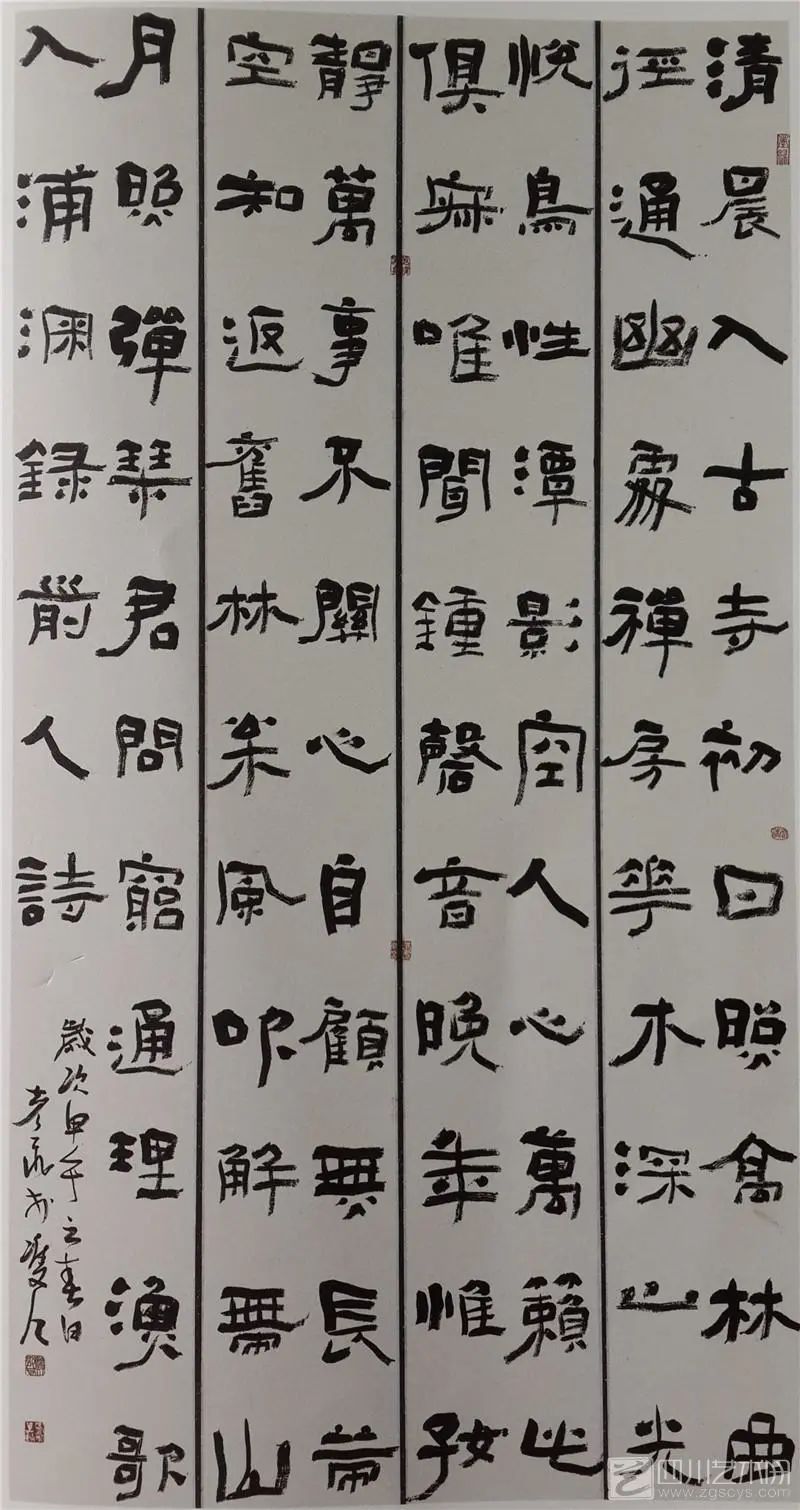 清晨入古寺初日照高林曲
徑通幽處禪房華木深山光
悅鳥性潭影空人心萬籟此
俱寂唯聞鍾磬音晚年惟好
靜萬事不關心自顧無長策
空知返舊林松風吹解帶山
月照彈琴君問窮通理漁歌
入浦深錄前人詩
歲次甲午之春日
四川艺术网
www.zgscys.com